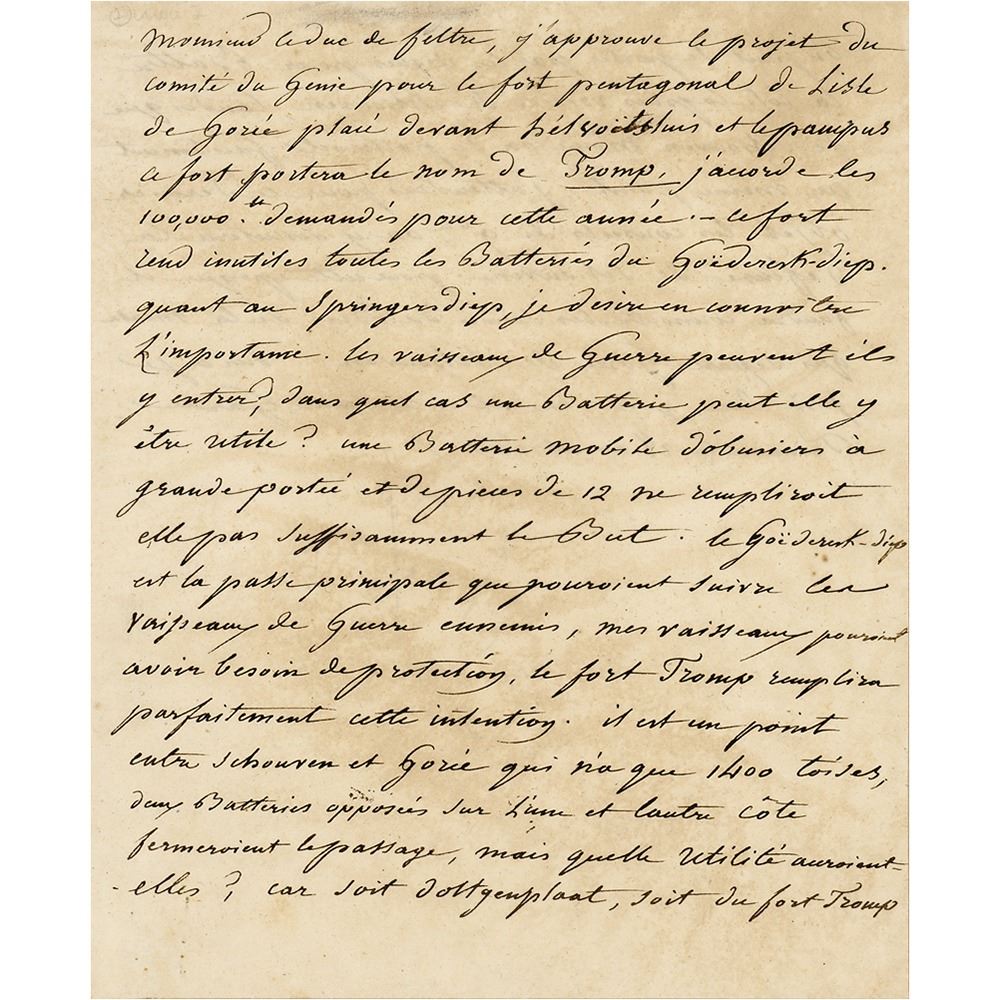 Monsieur le duc de feltre, j'approuve le projet du
comité du Genie pour le fort pentagonal de Lisle
de Gorée placé devant hélvoëtsluis et le pampus
ce fort portera le nom de Tromp, j'acorde les
100,000.tt demandés pour cette année. — ce fort
rend inutiles toutes les Batteries du Goëdereek-diep.
quant au Springersdiep, je desire en connoitre
L'importance. les vaisseaux de Guerre peuvent ils
y entrer?, dans quel cas une Batterie peut elle y
être utile? une Batterie mobile d'obusiers à
grande portée et de pieces de 12 ne rempliroit
elle pas suffisamment le But. le Goëdereek-diep
est la passe principale que pouroient suivre les
vaisseaux de Guerre ennemis, mes vaisseaux pouroient
avoir besoin de protection, le fort Tromp remplira
parfaitement cette intention. il est un point
entre schouven et Gorée qui n'a que 1400 toises,
deux Batteries opposées sur L'une et l'autre côte
fermeroient le passage, mais quelle utilité auroient-
-elles?, car soit d'oltgenplaat, soit du fort Tromp